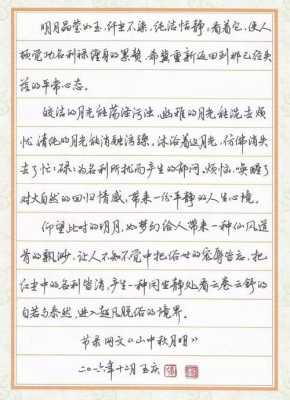 明月晶莹如玉，纤尘不染，纯洁恬静，看着它，使人
顿觉功名利禄缠身的累赘，希冀重新返回到那已经失
落的平常心态。
皎洁的月光能荡涤污浊，幽雅的月光能洗去烦
忧，清纯的月光能消融污镖，沐浴着这月光，仿佛消失
去了忙忙碌碌为名利所扰而产生的郁闷、烦恼，唤醒了
对大自然的回归情感，带来一份平静的人生心境。
仰望此时的明月，如梦幻给人带来一种仙风道
骨的飘渺，让人不知不觉中把俗世的宠辱皆忘，把
红尘中的名利皆消，产生一种闲坐静处看云卷云舒的
自若与泰然，进入超凡脱俗的境界。
节录网文《山中秋月明》
二〇一六年十二月 玉庆